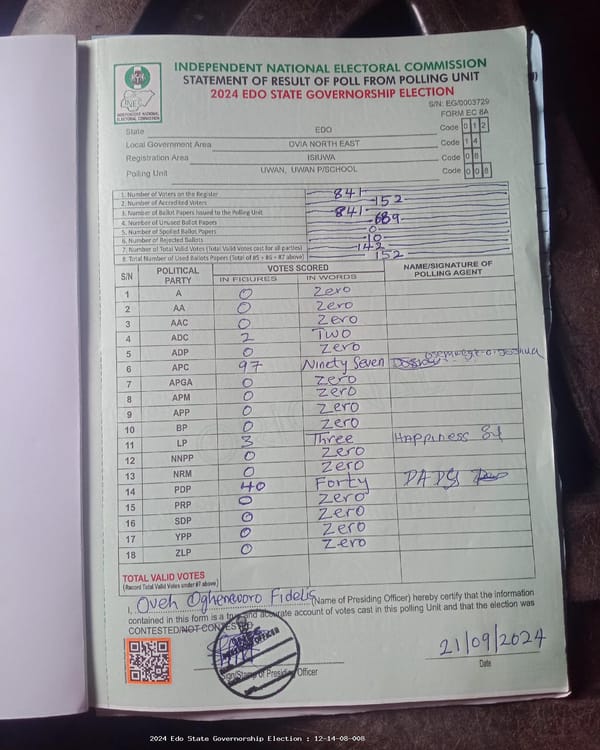 INDEPENDENT NATIONAL ELECTORAL COMMISSION
STATEMENT OF RESULT OF POLL FROM POLLING UNIT
2024 EDO STATE GOVERNORSHIP ELECTION
INEC
INDEPENDENT NATIONAL ELECTORAL COMMISSION
S/N: EG/0003729
FORM EC 8A
State EDO Code 0 1 2
Local Government Area OVIA NORTH EAST Code 1 4
Registration Area ISIUWA Code 0 8
Polling Unit UWAN, UWAN P/SCHOOL Code 0 0 8
1. Number of Voters on the Register 841
2. Number of Accredited Voters 152
3. Number of Ballot Papers Issued to the Polling Unit 841
4. Number of Unused Ballot Papers 689
5. Number of Spoiled Ballot Papers 0
6. Number of Rejected Ballots 10
7. Number of Total Valid Votes (Total Valid Votes cast for all parties) 142
8. Total Number of Used Ballots Papers (Total of #5 + #6 + #7 above) 152
S/N POLITICAL PARTY VOTES SCORED NAME/SIGNATURE OF POLLING AGENT
IN FIGURES IN WORDS
1 A 0 Zero
2 AA 0 Zero
3 AAC 0 Zero
4 ADC 2 Two
5 ADP 0 Zero
6 APC 97 Ninety Seven
7 APGA 0 Zero
8 APM 0 Zero
9 APP 0 Zero
10 BP 0 Zero
11 LP 3 Three Happiness
12 NNPP 0 Zero
13 NRM 0 Zero
14 PDP 40 Forty
15 PRP 0 Zero
16 SDP 0 Zero
17 YPP 0 Zero
18 ZLP 0 Zero
TOTAL VALID VOTES
(Record Total Valid Votes under #7 above)
I, Oveh Oghenevoro Fidelis (Name of Presiding Officer) hereby certify that the information
contained in this form is a true and accurate account of votes cast in this polling Unit and that the election was
CONTESTED/NOT CONTESTED
21/09/2024
Sign/Stamp of Presiding Officer
Date
2024 Edo State Governorship Election : 12-14-08-008